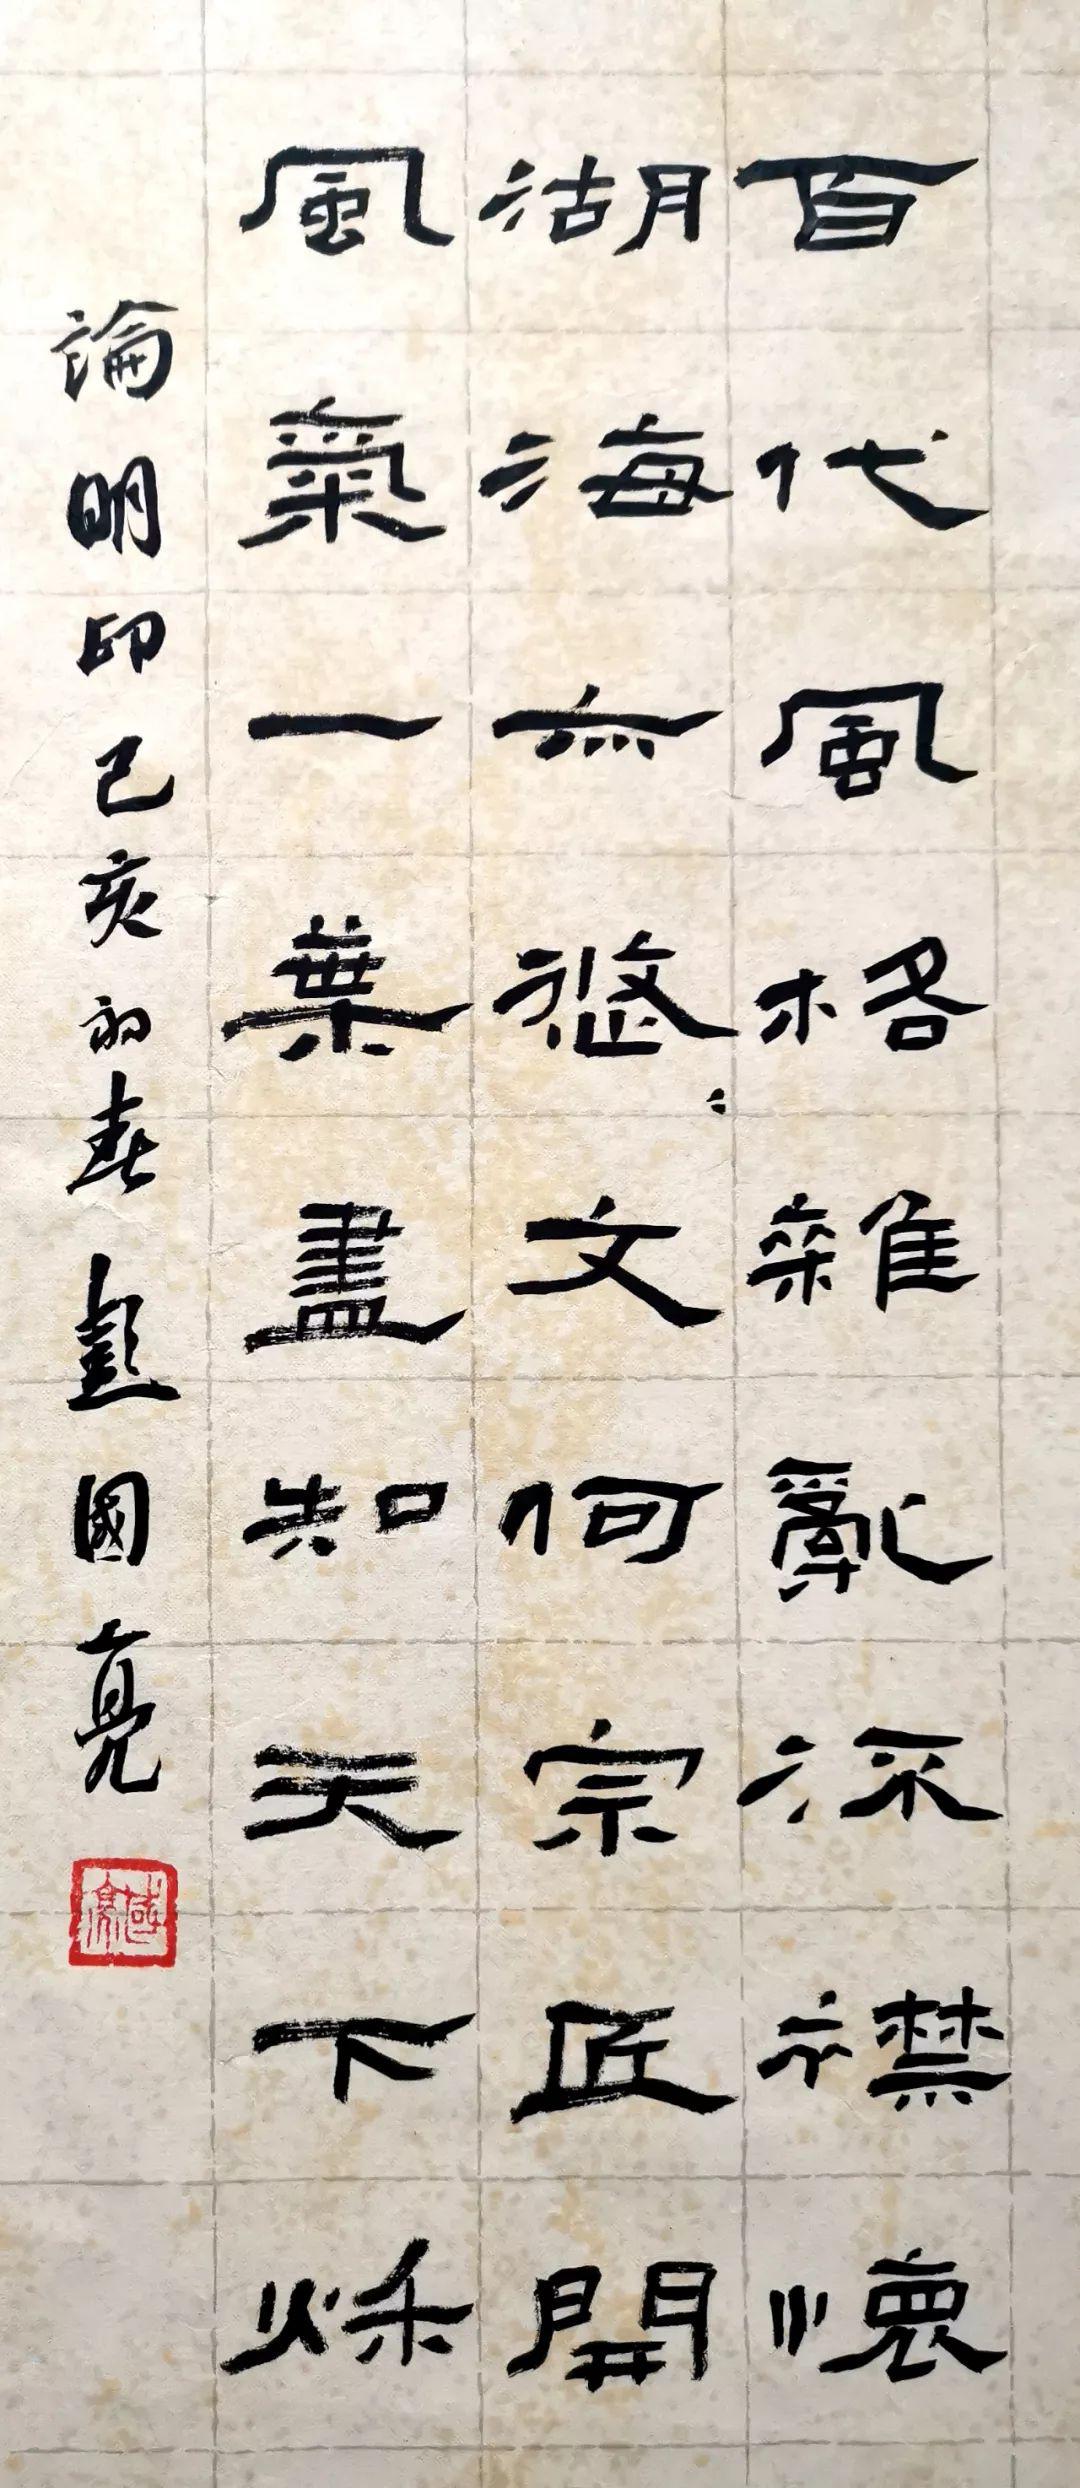 百代風格雜亂襟懷
湖海亦悠々文何宗匠開
風氣一葉盡知天下秋
論明印己亥初春彭國亮
國亮